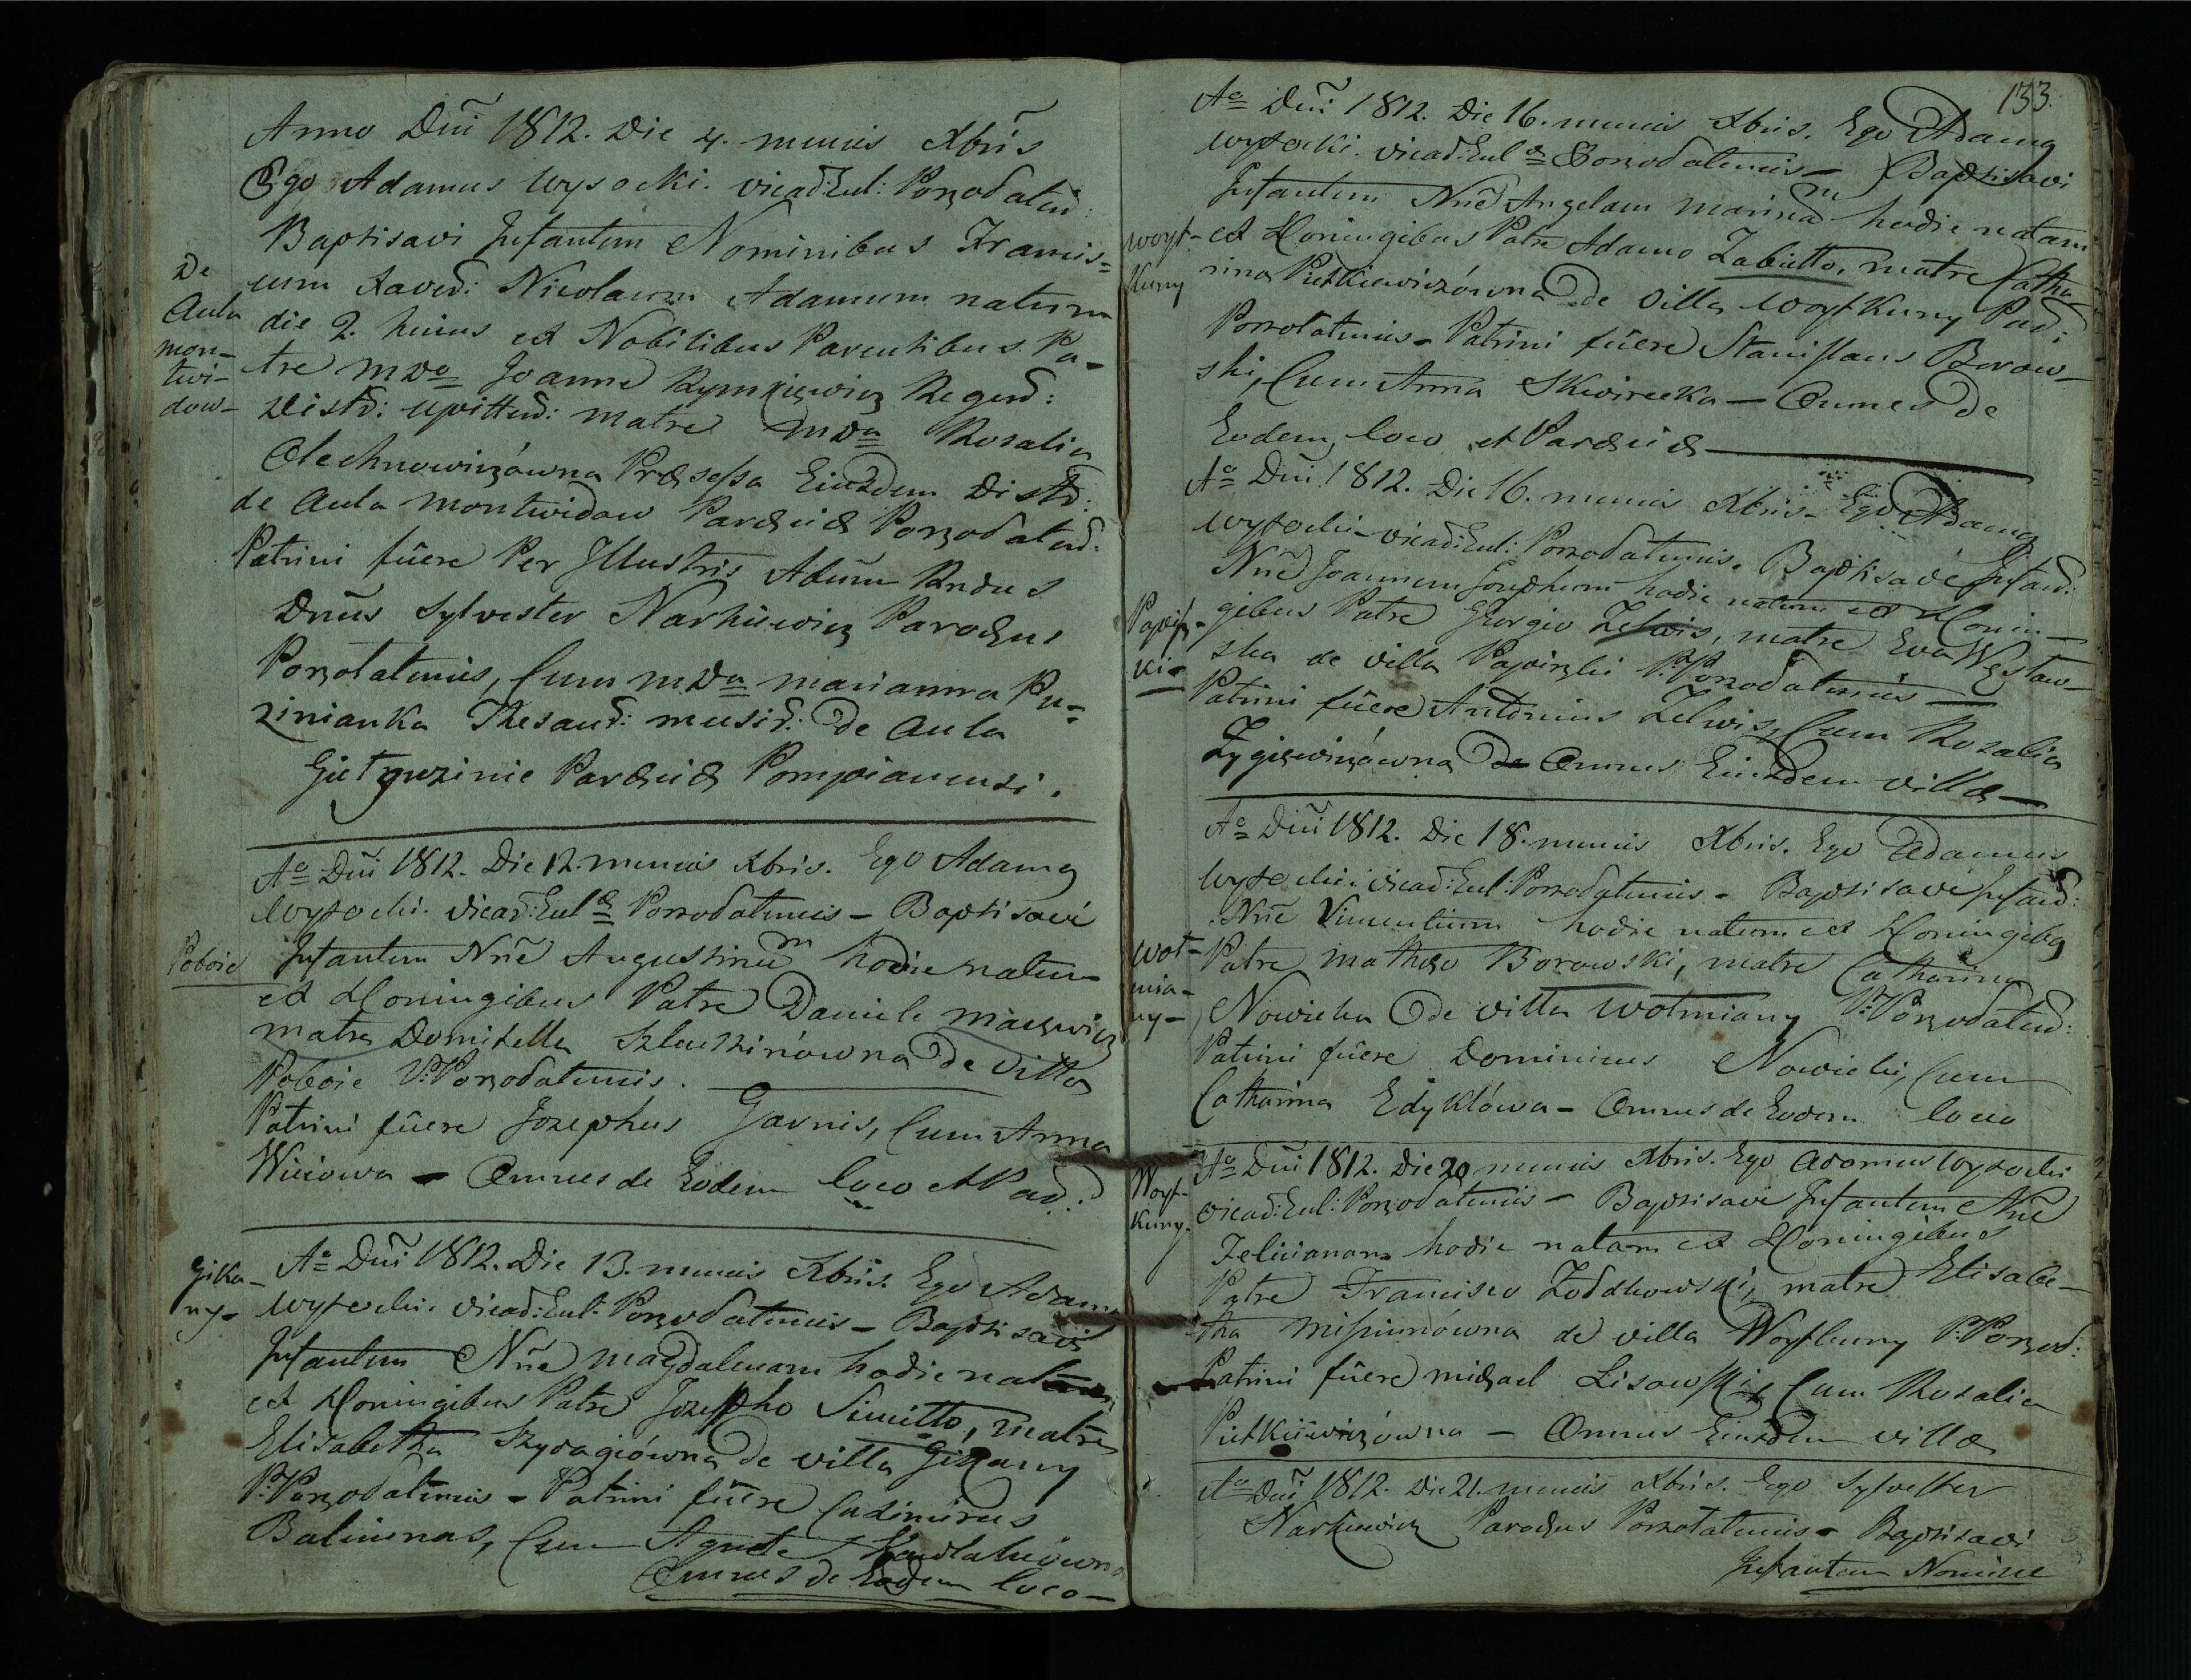 Anno Dñi 1812. Die 4. mensis Xbris
Ego Adamus Wysocki. vicad: Eul: Porzodaten:
Baptisavi Infantem Nominibus Francis=
De
cum Xaved: Nicolaum Adamum natum
Aula
die 2. huius ex Nobilibus Parentibus. Pa-
mon-
twi-
dow-
tre Mdo Joanne Rymkiewicz Regend:
Distr: Upitten: matre Mda Rosalia
Olechnowiczówna Præsessa Eiusdem Distr:
de Aula Montwidow Parochiæ Porzodaten:
Patrini fûere Per Illustris Adum Rndus
Dnûs Sylvester Narkiewicz Parochus
Porzolatensis, Cum Mda Marianna Pu=
zinianka Thesaur: De Aula
Parochiæ Pompianensi.
Ao Dñi 1812. Die 12. mensis Xbris. Ego Adamus
Wysocki. vicad: Eulæ Porzodatensis - Baptisavi
Poboie
Infantem Nñe Augustinũm hodie natum
ex Coniugibus Patre Daniele
matre Domitella de villa
Poboie P: Porzodatensis.
Patrini fûere Josephus Garnis, Cum Anna
Wiciowa - Omnes de Eodem loco et Par:
Gika-
ny-
Ao Dñi 1812. Die 13. mensis Xbris. Ego Adam
Wysocki. vicad: Eul: Porzodatensis - Baptisavi
Infantem Nñe Magdalenam hodie
ex Coniugibus Patre Josepho Simitto, matre
Elisabetha Szydagiówna de villa Gikany
P: Porzodatensis - Patrini fûere Casimirus
Baliunas, Cum
Omnes de Eodem loco -
133.
Ao Dñi 1812. Die 16. mensis Xbris. Ego Adamus
Wysocki. vicad: Eulæ Porzodatensis - Baptisavi
Infantem Nñe Angelam Marianam hodie natam
Woyt-
kuny
ex Coniugibus Patre Adamo Zabietto, matre Catha
rina Pietkiewiczówna De villa Woytkuny Par:
Porzolatensis - Patrini fûere Stanislaus Borow-
ski, Cum Anna Skwirecka - Omnes de
Eodem loco et Parochiæ
Ao Dñi 1812. Die 16. mensis Xbris - Ego Adamus
Wysocki - vicad: Eul: Porzodatensis. Baptisavi Infan:
Nñe Joannem Josephum hodie natum ex Coniu-
gibus Patre Georgio Zelwis, matre Eva
ska de villa P: Porzodatensis
Patrini fûere Antonius Zelwis, Cum Rosalia
Zygiewiczówna De Omnes Eiusdem villæ -
Ao Dñi 1812. Die 18. mensis Xbris. Ego Adamus
Wysocki: vicad: Eul: Porzodatensis - Baptisavi Infan:
Nñe Vincentium hodie natum ex Coniugibus
Wot-
mia-
ny-
Patre Matheo Borowski, matre Catharina
Nowicka De villa Wotmiany P: Porzodaten:
Patrini fûere Dominicus Nowicki, Cum
Catharina Edyktówa - Omnes de Eodem loco
Ao Dñi 1812. Die 20 mensis Xbris. Ego Adamus Wysocki
Woyt-
kuny.
vicad: Eul: Porzodatensis - Baptisavi Infantem Nñe
Felicianam hodie natam ex Coniugibus
Patre Francisco matre Elisabe-
tha de villa Woytkuny P: Porzod:
Patrini fûere Michael Lisowski, Cum Rosalia
Pietkiewiczówna - Omnes Eiusdem villæ
Ao Dñi 1812. Die 21. mensis Xbris. Ego Sylvester
Narkiewicz Parochus Porzolatensis - Baptisavi
Infantem Nomine